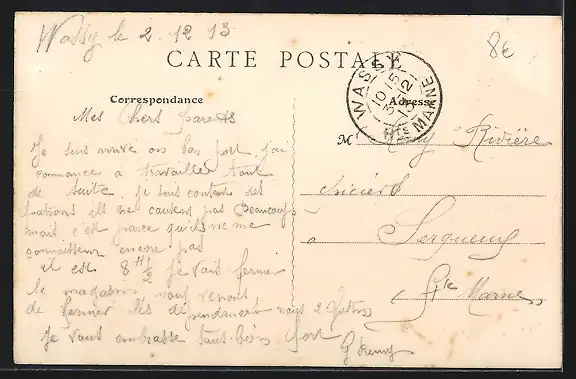 Wassy le 2.12 13
8€
CARTE POSTALE
Correspondance
Adresse
WASSY
10 15
3 -12
13
HTE MARNE
Mes Chers parents
M
Rivière
Je suis arrivé on bas port, j'ai
commancé a travailler tout
de suite, je suis content des
patrons ils ne causent pas Beaucoup
mais c'est parce qu'ils ne me
connaissent encore pas
à
Serqueux
Hte Marne
il est 8H ½ Je vais fermer
le magasin, nous venons
de fermer les dépendances nous 2
Je vous embrasse tous bien fort
G Remy